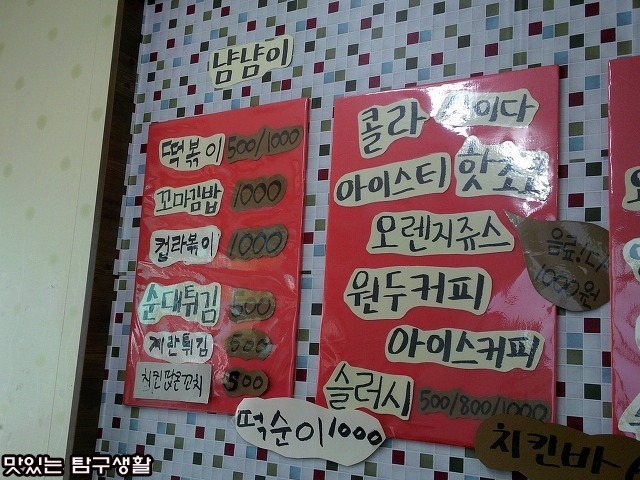 냠냠이
떡볶이 500/1000
꼬마김밥 1000
컵라볶이 1000
순대튀김 500
계란튀김 500
치킨떡꼬치 500
떡순이 1000
콜라 사이다
아이스티 핫초코
오렌지쥬스
음료! 다 1000원
원두커피
아이스커피
슬러시 500/800/1000
치킨바
맛있는 탐구생활